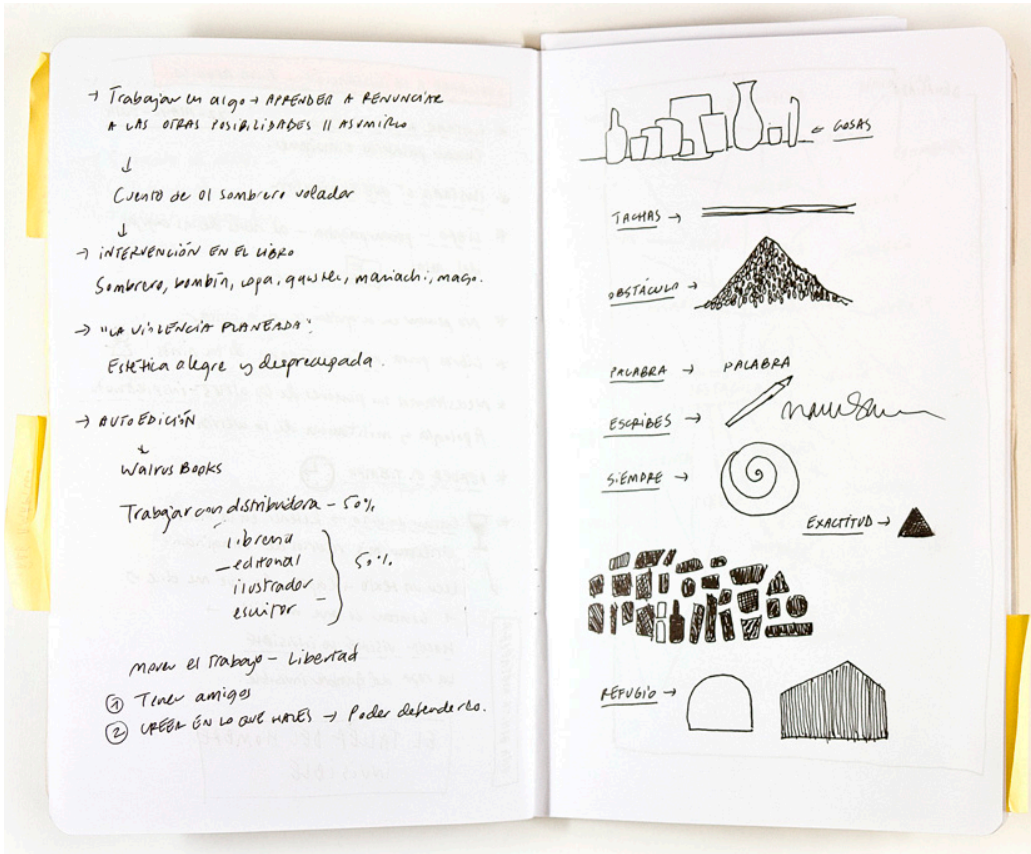 → Trabajar en algo → APRENDER A RENUNCIAR
A LAS OTRAS POSIBILIDADES || ASUMIRLO
↓
Cuento de el sombrero volador
↓
→ INTERVENCIÓN EN EL LIBRO
Sombrero, bombín, copa, mariachi, mago.
→ "LA VIOLENCIA PLANEADA".
Estética alegre y despreocupada.
→ AUTOEDICIÓN
↓
Walrus Books
Trabajar con distribuidora – 50%
librería
– editorial
ilustrador
escritor
50%
mover el trabajo – Libertad
① Tener amigos
② CREER EN LO QUE HACES → Poder defenderlo.
← COSAS
TACHAS →
OBSTÁCULO →
PALABRA → PALABRA
ESCRIBES →
SIEMPRE →
EXACTITUD →
REFUGIO →